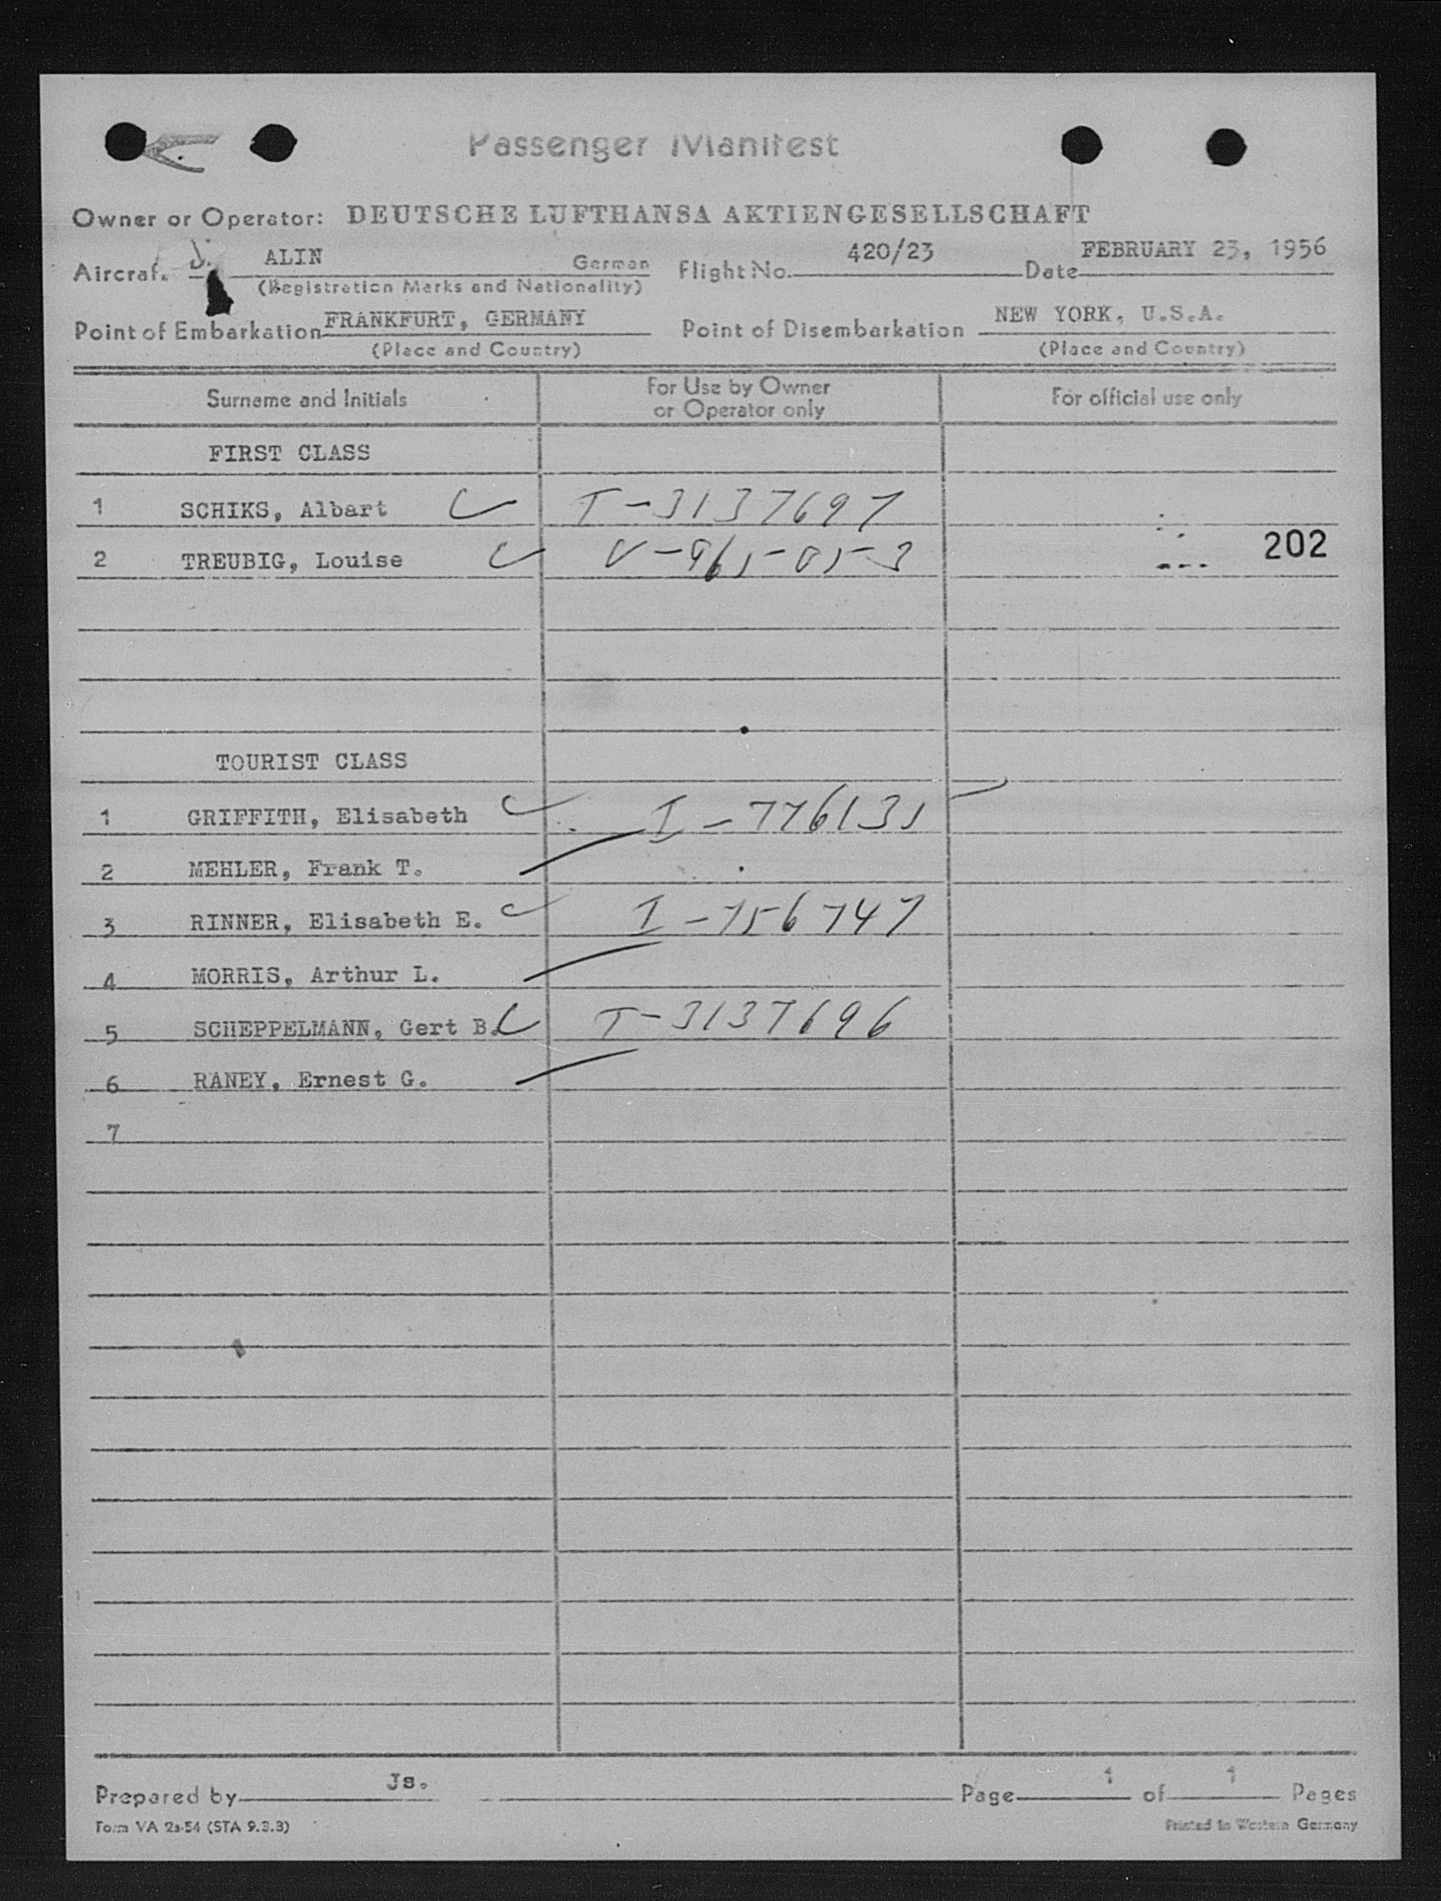 Passenger Manifest
Owner or Operator: DEUTSCHE LUFTHANSA AKTIENGESELLSCHAFT
Aircraft ALIN German Flight No. 420/23 Date FEBRUARY 23, 1956
(Registration Marks and Nationality)
Point of Embarkation FRANKFURT, GERMANY Point of Disembarkation NEW YORK, U.S.A.
(Place and Country) (Place and Country)
Surname and Initials For Use by Owner or Operator only For official use only
FIRST CLASS
1 SCHIKS, Albart T-3137697
2 TREUBIG, Louise V-965-05-3 202
TOURIST CLASS
1 GRIFFITH, Elisabeth I-776135
2 MEHLER, Frank T.
3 RINNER, Elisabeth E. I-756747
4 MORRIS, Arthur L.
5 SCHEPPELMANN, Gert B. T-3137696
6 RANEY, Ernest G.
7
Prepared by Js. Page 1 of 1 Pages
Form VA 2a-54 (STA 9.3.3) Printed in Western Germany